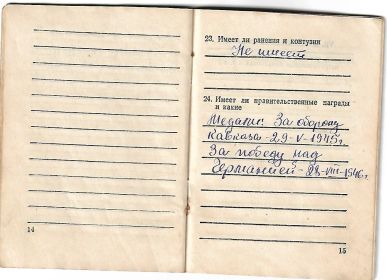 14
23. Имеет ли ранения и контузии
Не имеет
24. Имеет ли правительственные награды
и какие
Медали: За оборону
Кавказа - 29-V-1945г.
За победу над
Германией - 28-VIII-1946г.
15